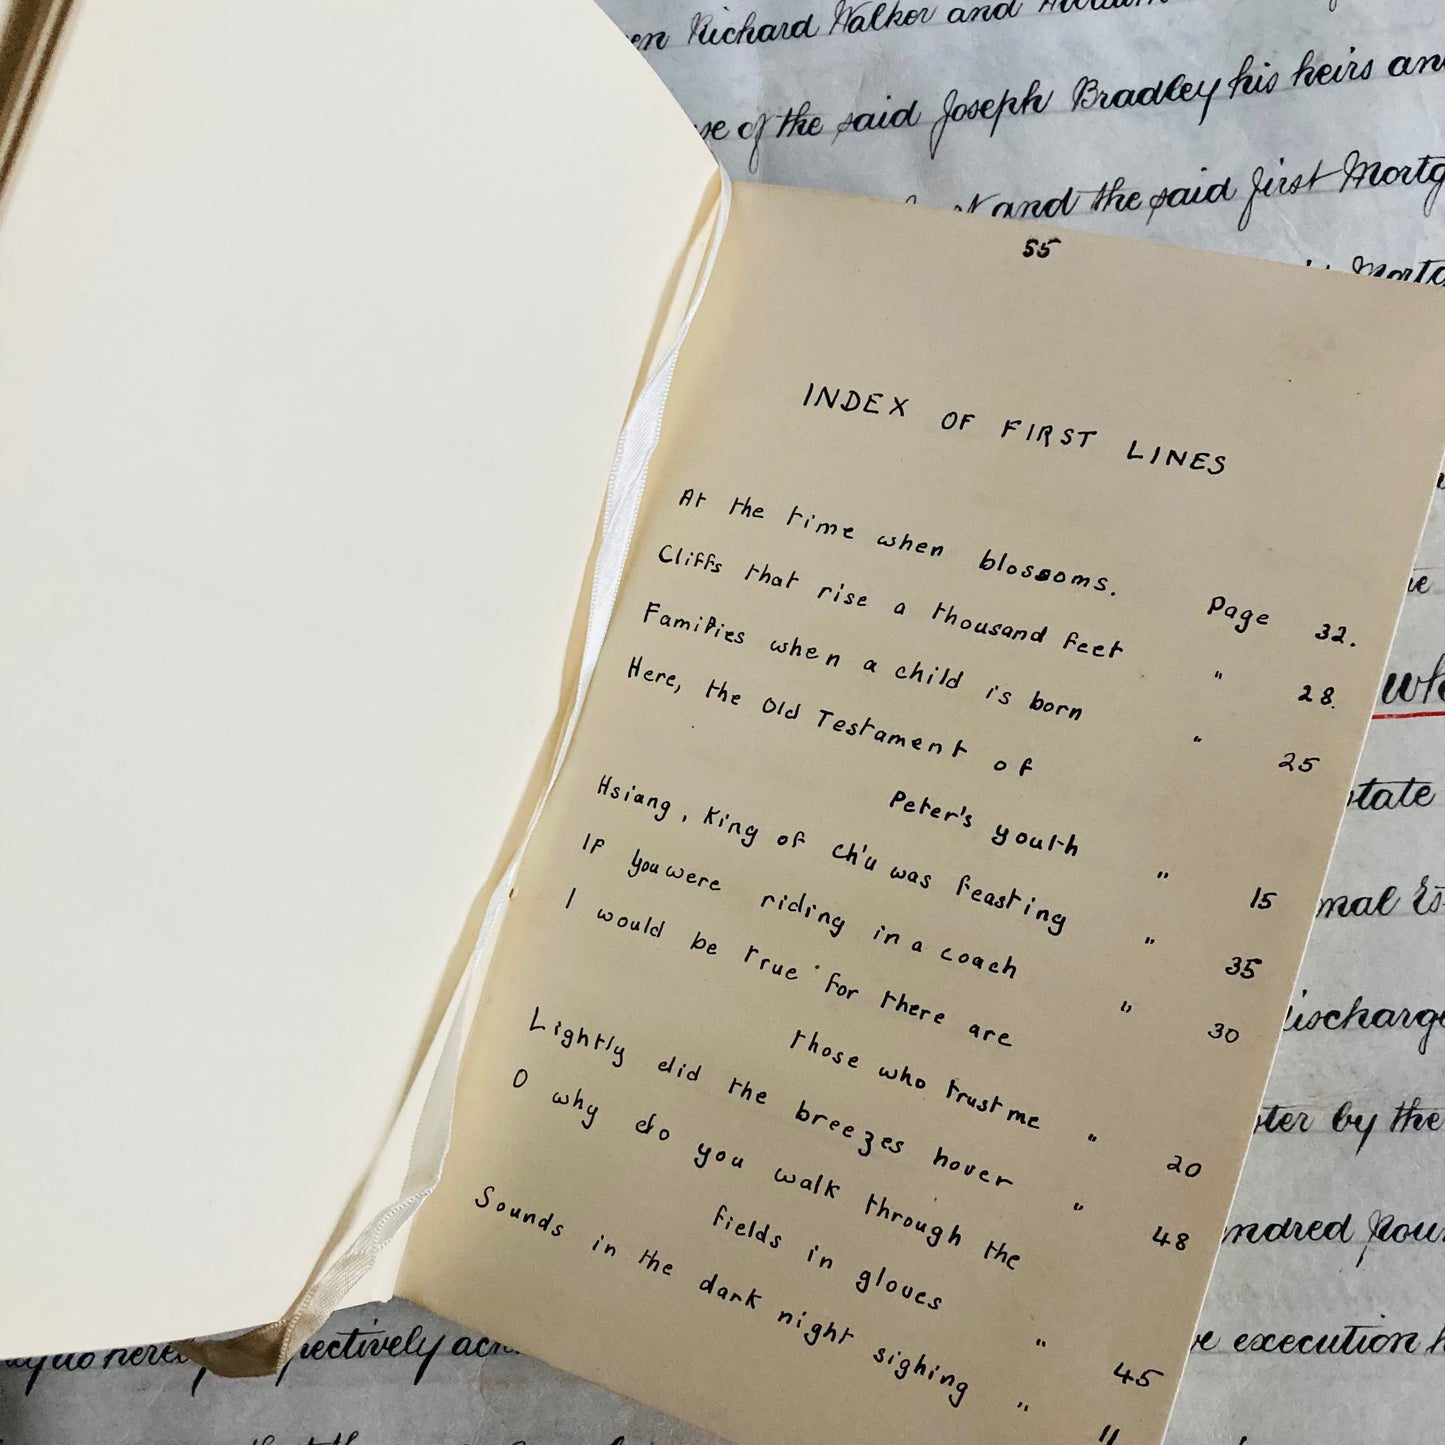 Richard Walker and
of the said Joseph Bradley his heirs and
and the said first
55
INDEX OF FIRST LINES
At the time when blossoms. Page 32.
Cliffs that rise a thousand feet " 28.
Families when a child is born " 25
Here, the Old Testament of
Peter's youth " 15
Hsiang, King of Ch'u was feasting " 35
If you were riding in a coach " 30
I would be true for there are
those who trust me " 20
Lightly did the breezes hover " 48
O why do you walk through the
fields in gloves " 45
Sounds in the dark night sighing " 11
by the
execution